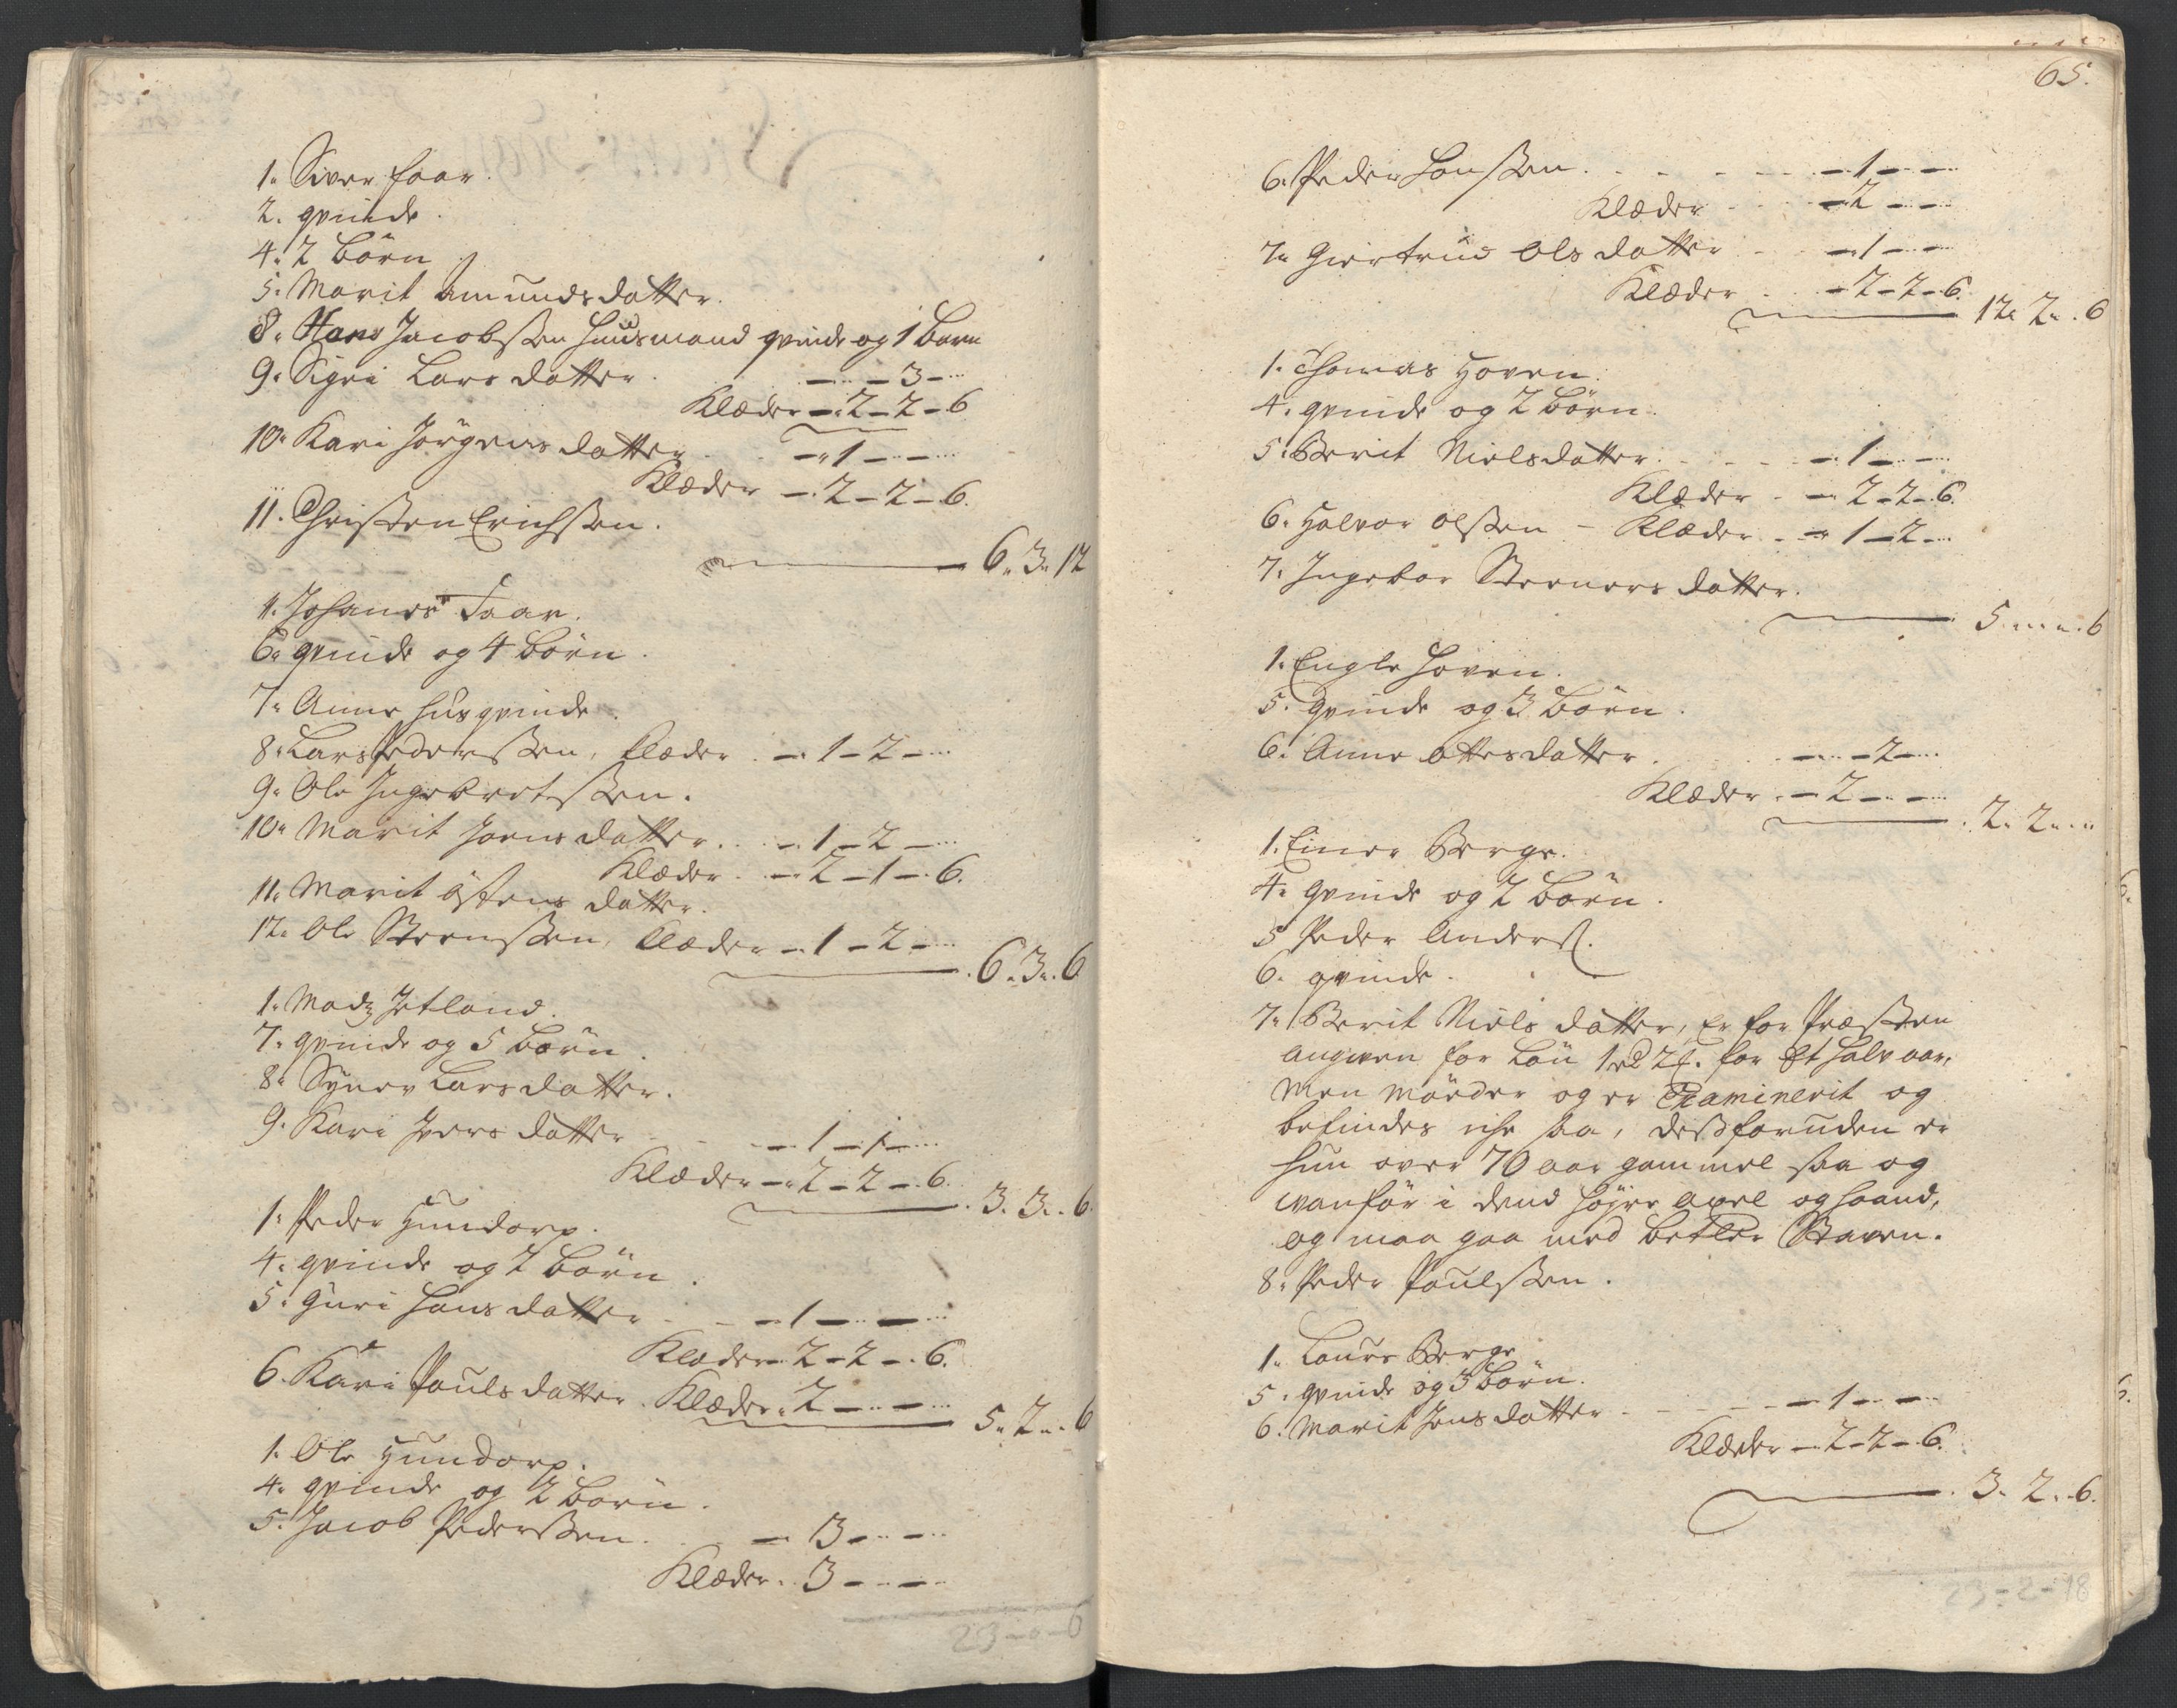 1. Siver Faar.
2. qvinde.
4. 2 börn
5. Marit Amundsdatter.
8. Hans Jacobssen huusmand qvinde og 1 barn
9. Sigri Larsdatter. — — 3 —
Klæder — 2 — 2 — 6
10. Kari Jörgensdatter. — 1 — —
Klæder — 2 — 2 — 6.
11. Christen Erichssen.
6. 3. 12
1. Johanes Faar.
6. qvinde og 4 börn.
7. Anne huusqvinde.
8. Lars Pederssen, Klæder. — 1 — 2 —
9. Ole Ingebretssen.
10. Marit Joensdatter. — 1 — 2 —
Klæder. — 2 — 1 — 6.
11. Marit Östensdatter.
12. Ole Steenssen, Klæder — 1 — 2 —
6. 3. 6
1. Madz Jetland.
7. qvinde og 5 börn.
8. Synev Larsdatter.
9. Kari Iversdatter — 1 — 1 —
Klæder — 2 — 2 — 6.
3. 3. 6.
1. Peder Hundorp.
4. qvinde og 2 börn.
5. Guri Hansdatter — 1 — —
Klæder 2 — 2 — 6.
6. Kari Poulsdatter. Klæder. 2 — —
5. 2. 6
1. Ole Hundorp.
4. qvinde og 2 börn.
5. Jacob Pederssen. — 3 — —
Klæder. 3 — —
23 - 0 - 0
65.
6. Peder Hanssen. — 1 — —
Klæder — 2 — —
7. Giertrud Olsdatter — 1 — —
Klæder — 2 — 2 — 6.
12. 2. 6
1. Thomas Hoven.
4. qvinde og 2 börn.
5. Berit Nielsdatter. — 1 — —
Klæder — 2 — 2 — 6.
6. Halvor Olssen — Klæder — 1 — 2 —
7. Ingebor Steenersdatter.
5. . . 6
1. Engle Hoven.
5. qvinde og 3 börn.
6. Anne Ottesdatter. — — 2 —
Klæder. — 2 — —
2. 2. .
1. Einer Berge.
4. qvinde og 2 börn.
5 Peder Anderss.
6. qvinde.
7. Berit Nielsdatter, er for Præsten
angiven for Lön 1 rd 2 f. for Et halv aar,
men mörder og er Examinerit og
befindes iche saa, dessforuden er
hun over 70 aar gammel saa og
vanför i dend höjre axel og haand,
og maa gaa med betler Staven.
8. Peder Poulssen.
1. Laurs Berge
5. qvinde og 3 börn.
6. Marit Jensdatter — 1 — —
Klæder — 2 — 2 — 6.
3. 2. 6.
23 - 2 - 18